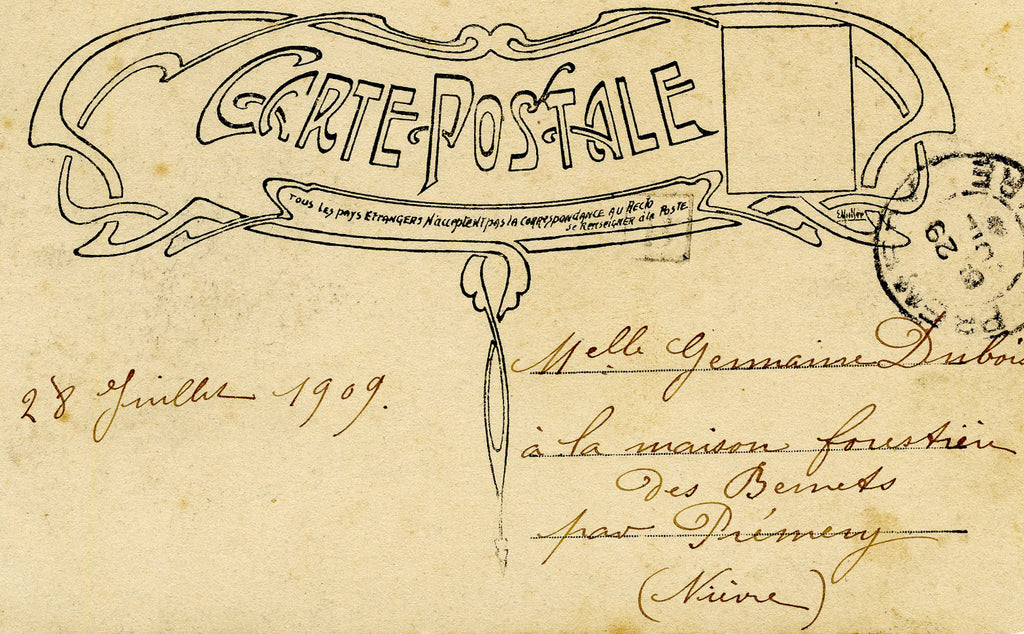 CARTE POSTALE
TOUS LES PAYS ETRANGERS N'ACCEPTENT PAS LA CORRESPONDANCE AU RECTO
SE RENSEIGNER à la POSTE
29
28 Juillet 1909.
Melle Germaine Dubois
à la maison forestière
des Bernets
par Prémery
(Nièvre)